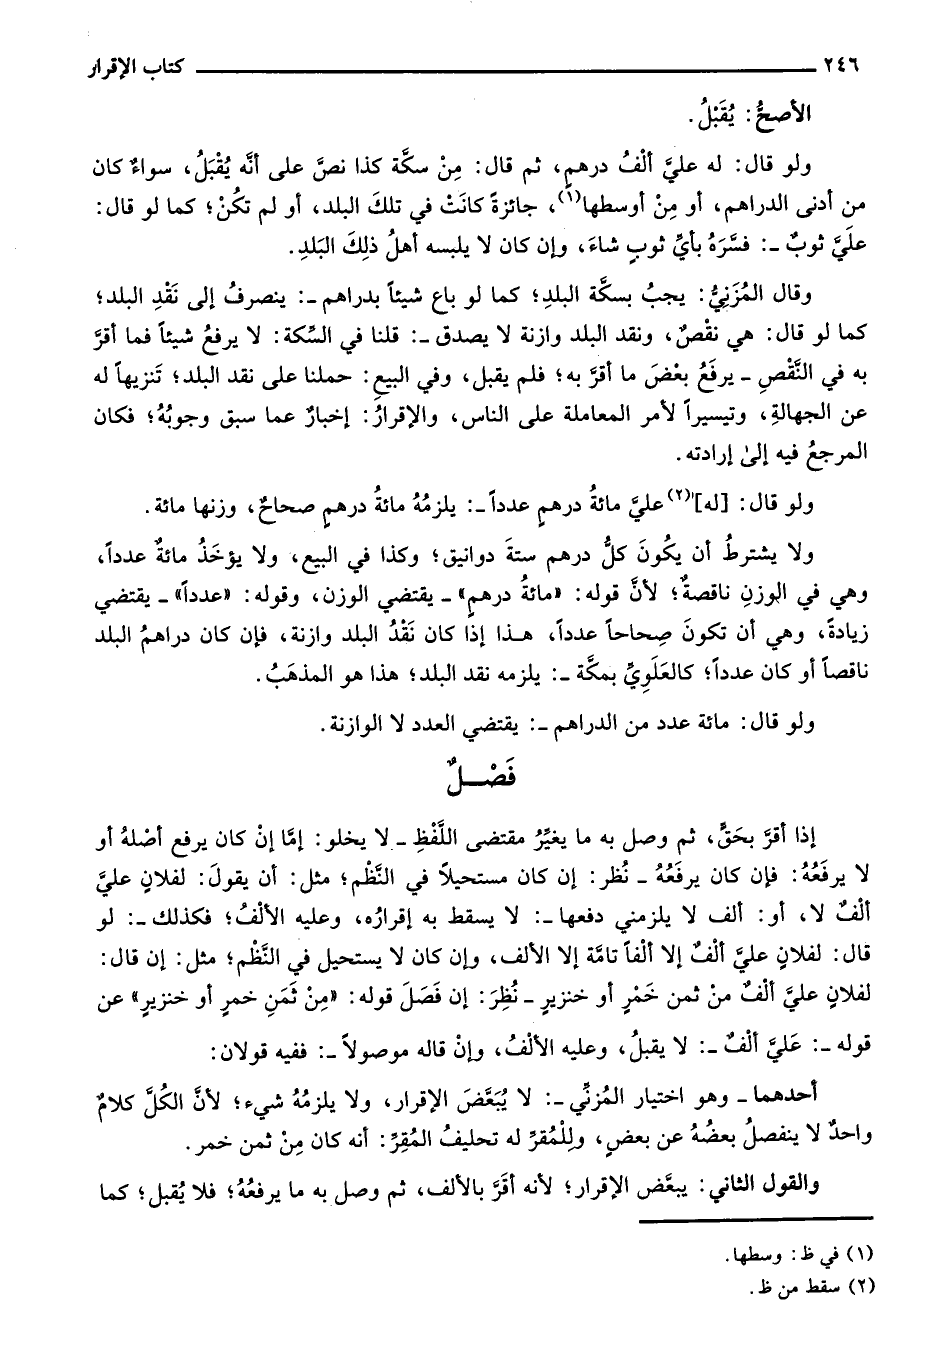 ٢٤٦ ــــــــــــــــــــــــــــــــــــــــ كتاب الإقرار
الأصحُّ: يُقَبْلُ.
ولو قال: له عليَّ ألْفُ درهمٍ، ثم قال: مِنْ سكَّة كذا نصَّ على أنَّه يُقْبَلُ، سواءٌ كان
من أدنى الدراهم، أو مِنْ أوسطها(١)، جائزةً كانَتْ في تلكَ البلد، أو لم تكُنْ؛ كما لو قال:
علَيَّ ثوبٌ ـ: فسَّرَهُ بأيِّ ثوبٍ شاءَ، وإن كان لا يلبسه أهلُ ذلِكَ البَلدِ.
وقال المُزَنِيُّ: يجبُ بسكَّة البلدِ؛ كما لو باع شيئاً بدراهم ـ: ينصرفُ إلى نَقْدِ البلد؛
كما لو قال: هي نقْصٌ، ونقد البلد وازنة لا يصدق ـ: قلنا في السِّكة: لا يرفعُ شيئاً فما أقرَّ
به في النَّقْصِ ـ يرفَعُ بعْضَ ما أقرَّ به؛ فلم يقبل، وفي البيع: حملنا على نقد البلد؛ تَنزيهاً له
عن الجهالةِ، وتيسيراً لأمر المعاملة على الناس، والإقرارُ: إخبارٌ عما سبق وجوبُهُ؛ فكان
المرجعُ فيه إلىٰ إرادته.
ولو قال: [له](٢) عليَّ مائةُ درهمٍ عدداً ـ: يلزمُهُ مائةُ درهمٍ صحاحٌ، وزنها مائة.
ولا يشترطُ أن يكُونَ كلُّ درهم ستةَ دوانيق؛ وكذا في البيع، ولا يؤخَذُ مائةٌ عدداً،
وهي في الوزنِ ناقصةٌ؛ لأنَّ قوله: «مائةُ درهمٍ» ـ يقتضي الوزن، وقوله: «عدداً» ـ يقتضي
زيادةً، وهي أن تكونَ صِحاحاً عدداً، هـذا إذا كان نَقْدُ البلد وازنة، فإن كان دراهمُ البلد
ناقصاً أو كان عدداً؛ كالعَلَوِيِّ بمكَّة ـ: يلزمه نقد البلد؛ هذا هو المذهَبُ.
ولو قال: مائة عدد من الدراهم ـ: يقتضي العدد لا الوازنة.
فَصْـــلٌ
إذا أقرَّ بحَقٍّ، ثم وصل به ما يغيِّرُ مقتضى اللَّفْظِ ـ لا يخلو: إمَّا إنْ كان يرفع أصْلهُ أو
لا يرفَعُهُ: فإن كان يرفَعُهُ ـ نُظر: إن كان مستحيلاً في النَّظْم؛ مثل: أن يقولَ: لفلانٍ عليَّ
ألْفٌ لا، أو: ألف لا يلزمني دفعها ـ: لا يسقط به إقرارُه، وعليه الألْفُ؛ فكذلك ـ: لو
قال: لفلانٍ عليَّ ألْفٌ إلا ألْفاً تامَّة إلا الألف، وإن كان لا يستحيل في النَّظْم؛ مثل: إن قال:
لفلانٍ عليَّ ألْفٌ منْ ثمن خَمْرٍ أو خنزيرٍ ـ نُظِرَ: إن فَصَلَ قوله: «مِنْ ثَمَنِ خمرٍ أو خنزيرٍ» عن
قوله ـ: عَليَّ ألْفٌ ـ: لا يقبلُ، وعليه الألْفُ، وإنْ قاله موصولاً ـ: ففيه قولان:
أحدهما ـ وهو اختيار المُزنِّي ـ: لا يُبَعَّضَ الإقرار، ولا يلزمُهُ شيء؛ لأنَّ الكُلَّ كلامٌ
واحدٌ لا ينفصلُ بعضُهُ عن بعضٍ، ولِلْمُقرِّ له تحليفُ المُقِرِّ: أنه كان مِنْ ثمن خمر.
والقول الثاني: يبعَّض الإقرار؛ لأنه أقَرَّ بالألف، ثم وصل به ما يرفعُهُ؛ فلا يُقبل؛ كما
(١) في ظ: وسطها.
(٢) سقط من ظ.